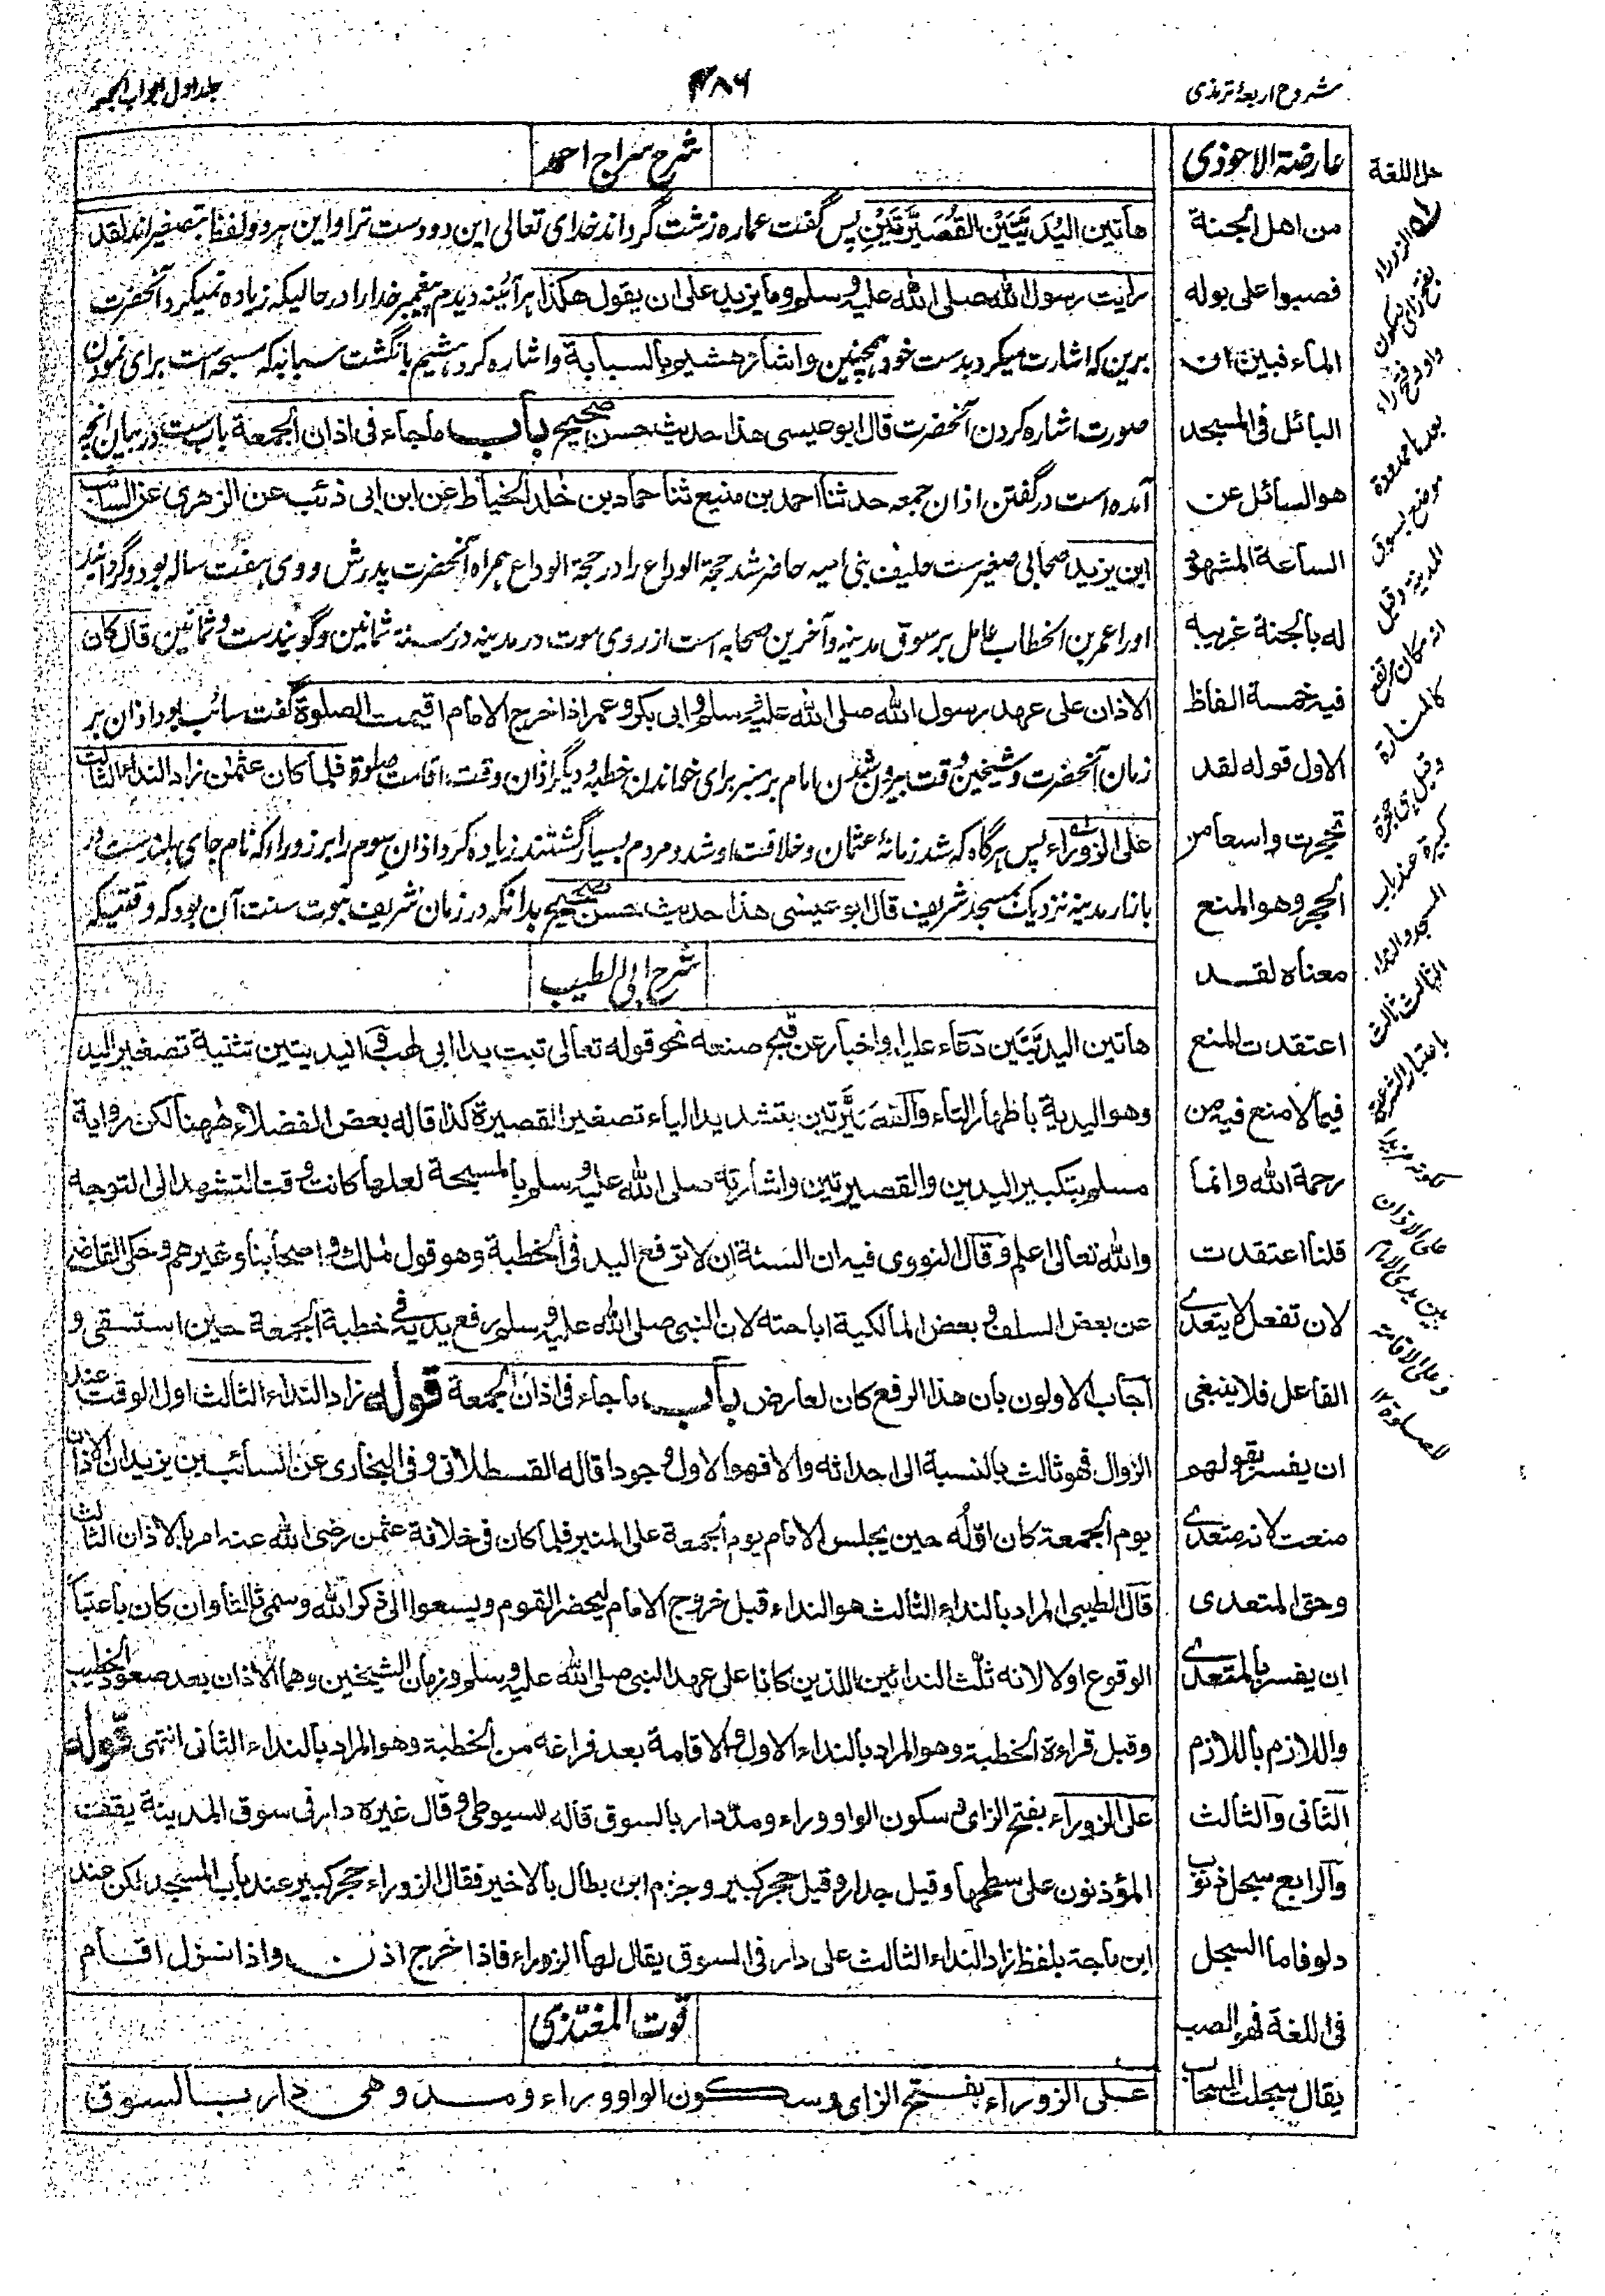 شروح اربعۀ ترمذی
۴۸۶
جلد اول ابواب الجمعه
عارضة الاحوذی
من اهل الجنة
فصبوا علی بوله
الماء فبين ان
البائل فی المسجد
هو السائل عن
الساعة المشهود
له بالجنة غريبه
فيه خمسة الفاظ
الاول قوله لقد
تحجرت واسعا من
الحجر وهو المنع
معناه لقد
اعتقدت المنع
فيما لا منع فيه من
رحمة الله وانما
قلنا اعتقدت
لان تفعل لا يتعدى
الفاعل فلا ينبغی
ان يفسر بقولهم
منعت لانه متعدی
وحق المتعدی
ان يفسر بالمتعدی
واللازم باللازم
الثانی والثالث
والرابع سجل ذنوب
دلو فاما السجل
فی اللغة فهو الصب
يقال سجلت السحاب
شرح سراج احمد
هاتين اليُدَيَّتَيْن القُصَيَّرَتَيْنِ پس گفت عماره زشت گرداند خدای تعالی این دو دست ترا و این هر دو لفظ بتصغیر اند لقد
رایت رسول الله صلی الله علیه وسلم وما یزید علی ان یقول هکذا هر آئینه دیدم پیغمبر خدا را در حالیکه زیاده نمیکرد آنحضرت
برین که اشارت میکرد بدست خود همچنین واشار هشیم بالسبابة واشاره کرد هشیم بانگشت سبابه که مسبحه است برای نمودن
صورت اشاره کردن آنحضرت قال ابو عیسی هذا حدیث حسن صحیح باب ما جاء فی اذان الجمعة باب ست در بیان انچه
آمده است در گفتن اذان جمعه حدثنا احمد بن منیع ثنا حماد بن خلد الخیاط عن ابن ابی ذئب عن الزهری عن السائب
ابن یزید صحابی صغیر ست حلیف بنی امیه حاضر شد حجة الوداع را در حجة الوداع همراه آنحضرت پدرش و وی هفت ساله بود و گردانید
او را عمر بن الخطاب عامل بر سوق مدینه و آخرین صحابه است از روی موت در مدینه در سنة ثمانین و گویند ست وثمانین قال کان
الاذان علی عهد رسول الله صلی الله علیه وسلم وابی بکر وعمر اذا خرج الامام اقیمت الصلوة گفت سائب بود اذان بر
زمان آنحضرت و شیخین وقت بیرون شدن امام بر منبر برای خواندن خطبه و دیگر اذان وقت اقامت صلوة فلما کان عثمن زاد النداء الثالث
علی الزوراء پس هرگاه که شد زمانۀ عثمان و خلافت او شد و مردم بسیار گشتند زیاده کرد اذان سوم را بر زورا که نام جای بلند ست در
بازار مدینه نزدیک مسجد شریف قال ابو عیسی هذا حدیث حسن صحیح بدانکه در زمان شریف نبوت سنت آن بود که وقتیکه
شرح ابی الطیب
هاتين اليديتين دعاء عليه او اخبار عن قبح صنعه نحو قوله تعالی تبت يدا ابی لهب واليديتين تثنية تصغير اليد
وهو اليدية باظهار التاء والقصيرتين بتشديد الياء تصغير القصيرة كذا قاله بعض الفضلاء ههنا لكن رواية
مسلم بتكبير اليدين والقصيرتين واشارته صلی الله عليه وسلم بالمسبحة لعلها كانت وقت التشهد الی التوجه
والله تعالی اعلم وقال النووی فيه ان السنة ان لا ترفع اليد فی الخطبة وهو قول ملك واصحابنا وغيرهم وحكی القاضی
عن بعض السلف وبعض المالكية اباحته لان النبی صلی الله عليه وسلم رفع يديه فی خطبة الجمعة حين استسقی و
اجاب الاولون بان هذا الرفع كان لعارض باب ما جاء فی اذان الجمعة قوله زاد النداء الثالث اول الوقت عند
الزوال فهو ثالث بالنسبة الی احداثه والا فهو الاول وجودا قاله القسطلانی وفی البخاری عن السائب بن يزيد ان الاذان
يوم الجمعة كان اوله حين يجلس الامام يوم الجمعة علی المنبر فلما كان فی خلافة عثمن رضی الله عنه امر بالاذان الثالث
قال الطيبی المراد بالنداء الثالث هو النداء قبل خروج الامام ليحضر القوم ويسعوا الی ذكر الله وسمی ثالثا وان كان باعتبا
الوقوع اولا لانه ثلث الندائين اللذين كانا علی عهد النبی صلی الله عليه وسلم وزمان الشيخين وهما الاذان بعد صعود الخطيب
وقبل قراءة الخطبة وهو المراد بالنداء الاول والاقامة بعد فراغه من الخطبة وهو المراد بالنداء الثانی انتهی قوله
علی الزوراء بفتح الزای وسكون الواو وراء ومد دار بالسوق قاله السيوطی وقال غيره دار فی سوق المدينة يقف
المؤذنون علی سطحها وقيل جدار وقيل حجر كبير وجزم ابن بطال بالاخير فقال الزوراء حجر كبير عند باب المسجد لكن عند
ابن ماجة بلفظ زاد النداء الثالث علی دار فی السوق يقال لها الزوراء فاذا خرج اذن واذا نزل اقام
قوت المغتذی
علی الزوراء بفتح الزای وسكون الواو وراء ومد وهی دار بالسوق
حل اللغة
له الزوراء
بفتح زای وسكون
واو وفتح راء
بعدها ممدودة
موضع بسوق
المدينة وقيل
انه مكان مرتفع
كالمنارة
وقيل هی حجرة
كبيرة عند باب
المسجد والنداء
الثالث ثالث
باعتبار الشرعية
لكونه مزيدا
علی الاذان
بين يدی الامام
وعلی الاقامة
للصلوة ۱۲